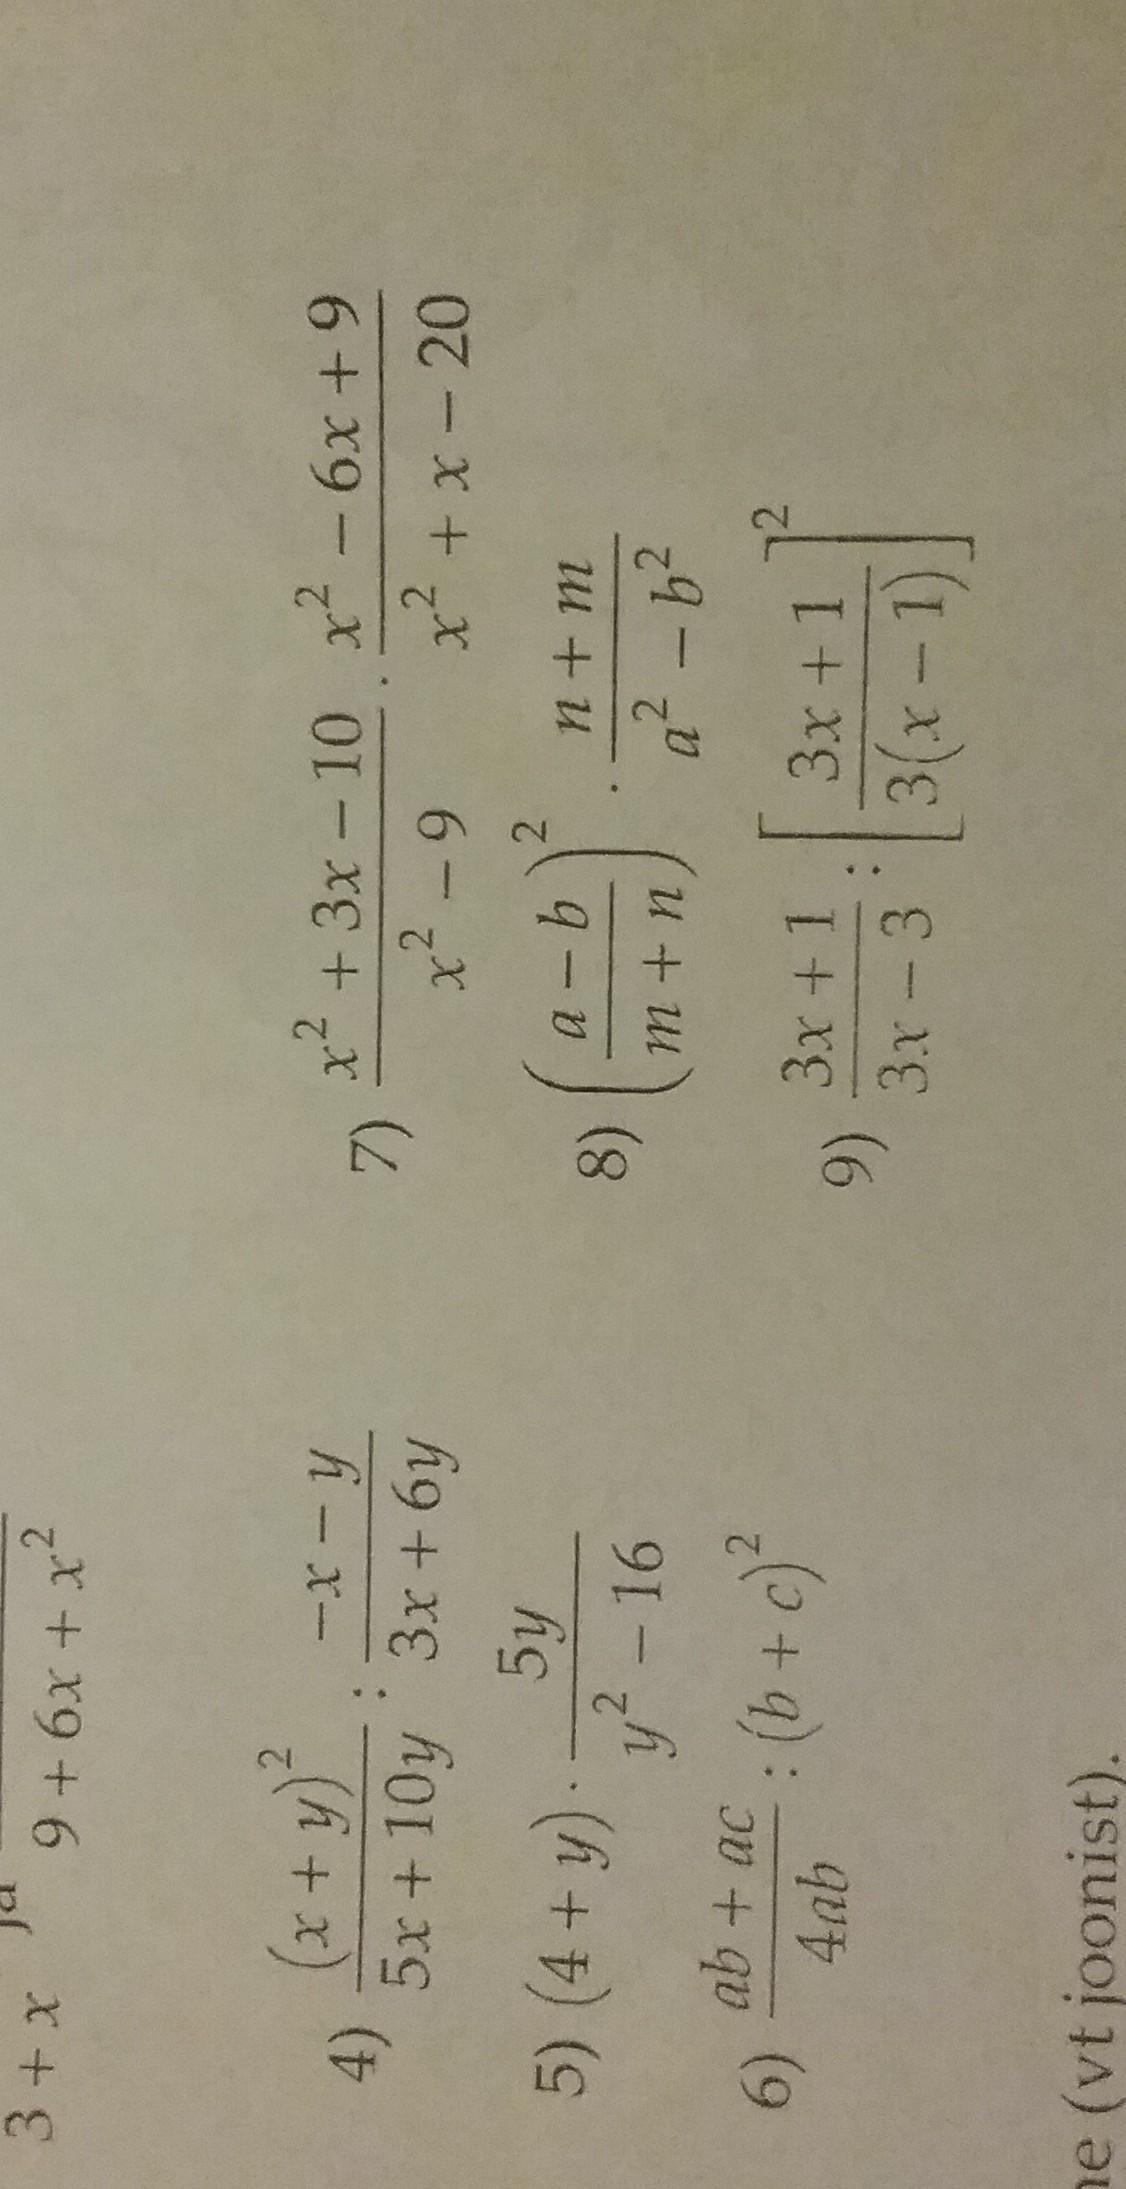 3 + x ja 9 + 6x + x²
4) (x + y)² / 5x + 10y : −x − y / 3x + 6y
5) (4 + y) · 5y / y² − 16
6) ab + ac / 4ab : (b + c)²
7) x² + 3x − 10 / x² − 9 · x² − 6x + 9 / x² + x − 20
8) (a − b / m + n)² · n + m / a² − b²
9) 3x + 1 / 3x − 3 : [3x + 1 / 3(x − 1)]²
(vt joonist).